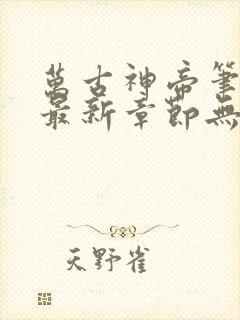 萬古神帝筆
最新章節無
天野雀